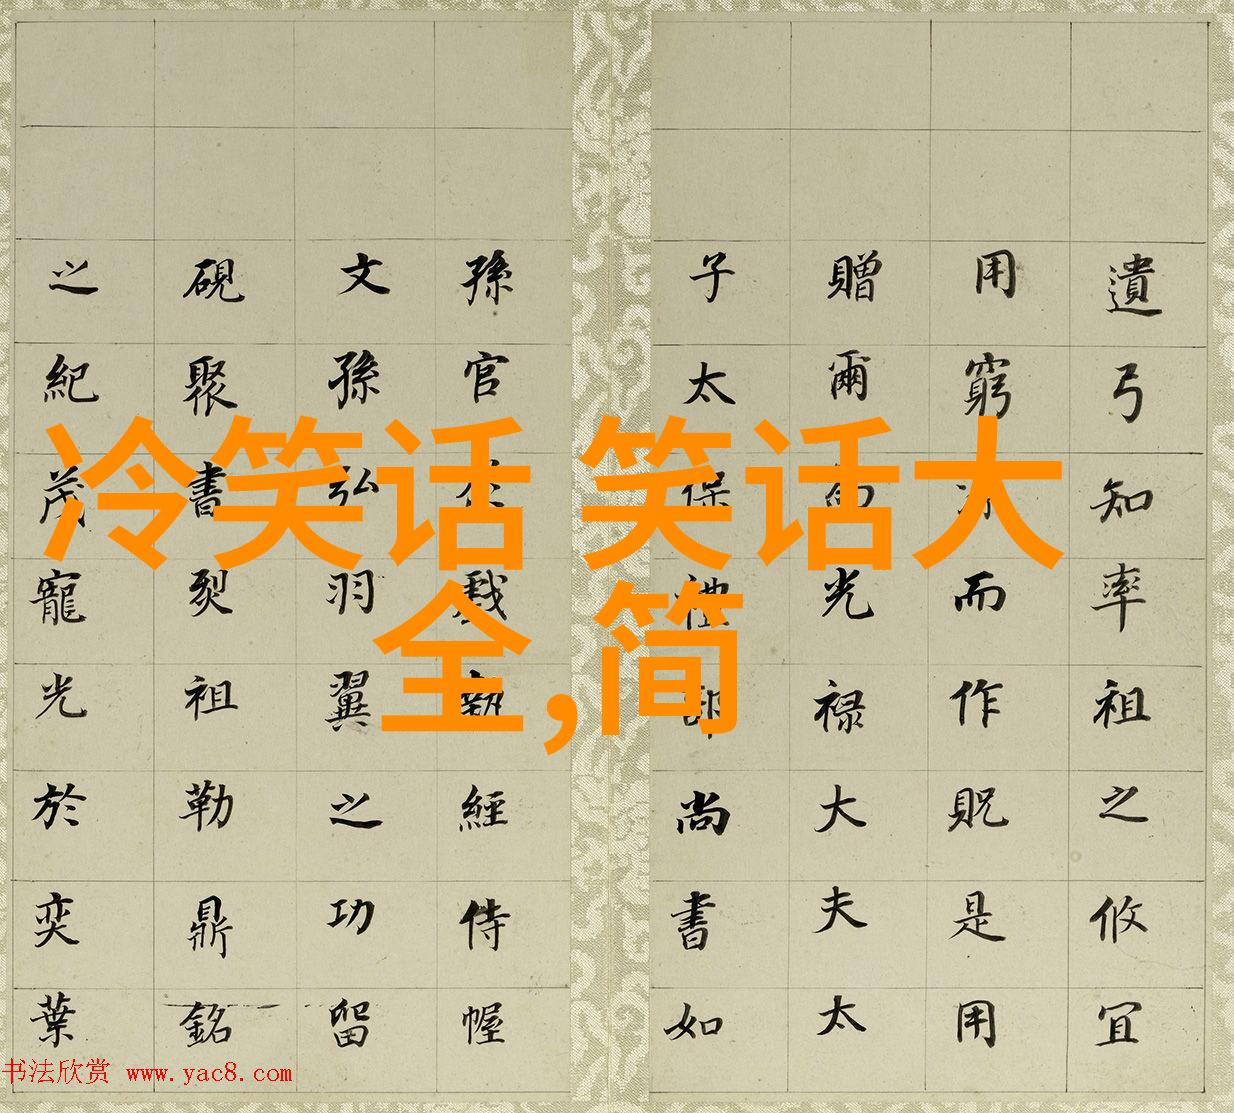 冷笑话 笑话大
全,简
遺弓知率祖之攸宜
用窮而作貺是用
贈爾光禄大夫太
子太保禮部尚書如
孫官經侍幄
文孫弘羽翼之功留
硯聚書祖勒鼎銘
之紀茂寵光於奕葉
书法欣赏 www.yac8.com